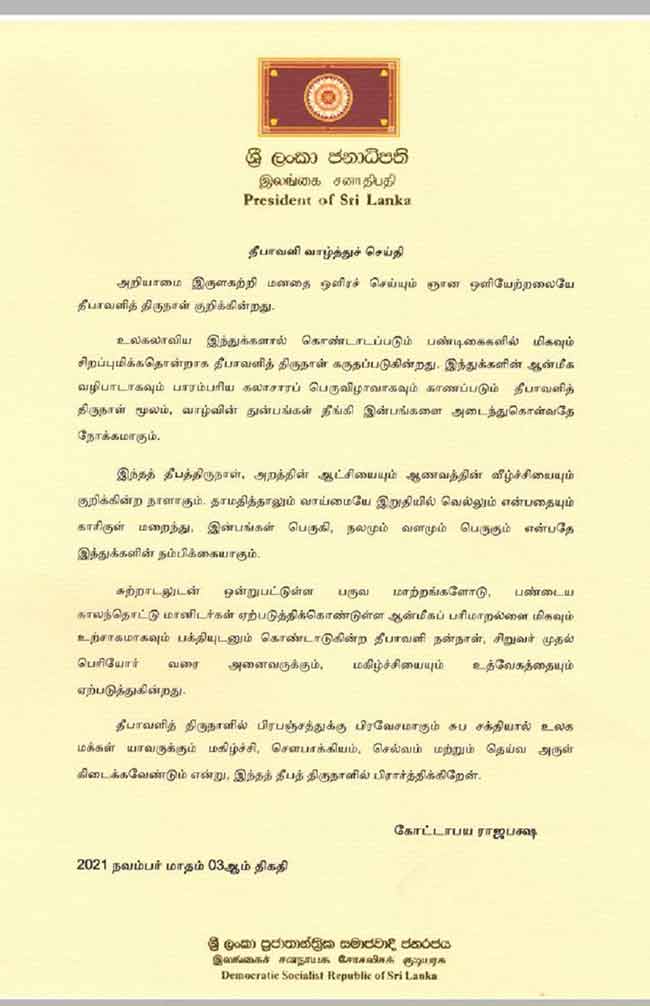 ශ්‍රී ලංකා ජනාධිපති
இலங்கை சனாதிபதி
President of Sri Lanka
தீபாவளி வாழ்த்துச் செய்தி
அறியாமை இருளகற்றி மனதை ஒளிரச் செய்யும் ஞான ஒளியேற்றலையே
தீபாவளித் திருநாள் குறிக்கின்றது.
உலகலாவிய இந்துக்களால் கொண்டாடப்படும் பண்டிகைகளில் மிகவும்
சிறப்புமிக்கதொன்றாக தீபாவளித் திருநாள் கருதப்படுகின்றது. இந்துக்களின் ஆன்மீக
வழிபாடாகவும் பாரம்பரிய கலாசாரப் பெருவிழாவாகவும் காணப்படும் தீபாவளித்
திருநாள் மூலம், வாழ்வின் துன்பங்கள் நீங்கி இன்பங்களை அடைந்துகொள்வதே
நோக்கமாகும்.
இந்தத் தீபத்திருநாள், அறத்தின் ஆட்சியையும் ஆணவத்தின் வீழ்ச்சியையும்
குறிக்கின்ற நாளாகும். தாமதித்தாலும் வாய்மையே இறுதியில் வெல்லும் என்பதையும்
காரிருள் மறைந்து, இன்பங்கள் பெருகி, நலமும் வளமும் பெருகும் என்பதே
இந்துக்களின் நம்பிக்கையாகும்.
சுற்றாடலுடன் ஒன்றுபட்டுள்ள பருவ மாற்றங்களோடு, பண்டைய
காலந்தொட்டு மானிடர்கள் ஏற்படுத்திக்கொண்டுள்ள ஆன்மீகப் பரிமாறலை மிகவும்
உற்சாகமாகவும் பக்தியுடனும் கொண்டாடுகின்ற தீபாவளி நன்நாள், சிறுவர் முதல்
பெரியோர் வரை அனைவருக்கும், மகிழ்ச்சியையும் உத்வேகத்தையும்
ஏற்படுத்துகின்றது.
தீபாவளித் திருநாளில் பிரபஞ்சத்துக்கு பிரவேசமாகும் சுப சக்தியால் உலக
மக்கள் யாவருக்கும் மகிழ்ச்சி, சௌபாக்கியம், செல்வம் மற்றும் தெய்வ அருள்
கிடைக்கவேண்டும் என்று, இந்தத் தீபத் திருநாளில் பிரார்த்திக்கிறேன்.
கோட்டாபய ராஜபக்ஷ
2021 நவம்பர் மாதம் 03ஆம் திகதி
ශ්‍රී ලංකා ප්‍රජාතාන්ත්‍රික සමාජවාදී ජනරජය
இலங்கைச் சனநாயக சோசலிசக் குடியரசு
Democratic Socialist Republic of Sri Lanka